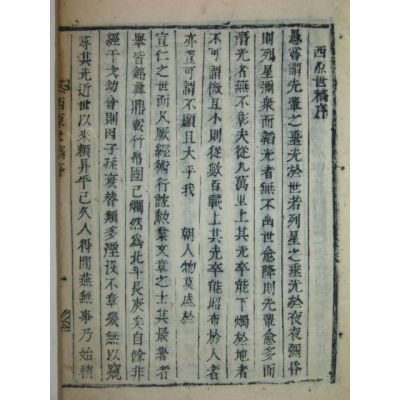 西原世稿序
愚嘗謂先輩之垂光於世若列星之垂光於夜夜彌昏
則列星彌衆而韜光者無不幽世愈降則先輩愈多而
潛光者無不章夫從九萬里上其光卒能下燭於地者
不可謂微且小則從數百載上其光卒能昭布於人者
亦豈可謂不顯且大乎我 朝人物莫盛於
宣仁之世而凡厥經術行誼勳業文章之士其最著者
擧皆銘彝鼎載竹帛固已爛然為北斗長庚矣自餘非
經干戈劫會則因子孫凌替類多湮沒不章幾無以窺
尋其光近世以來賴昇平已久人得閒燕無事乃始稍
西原世稿序